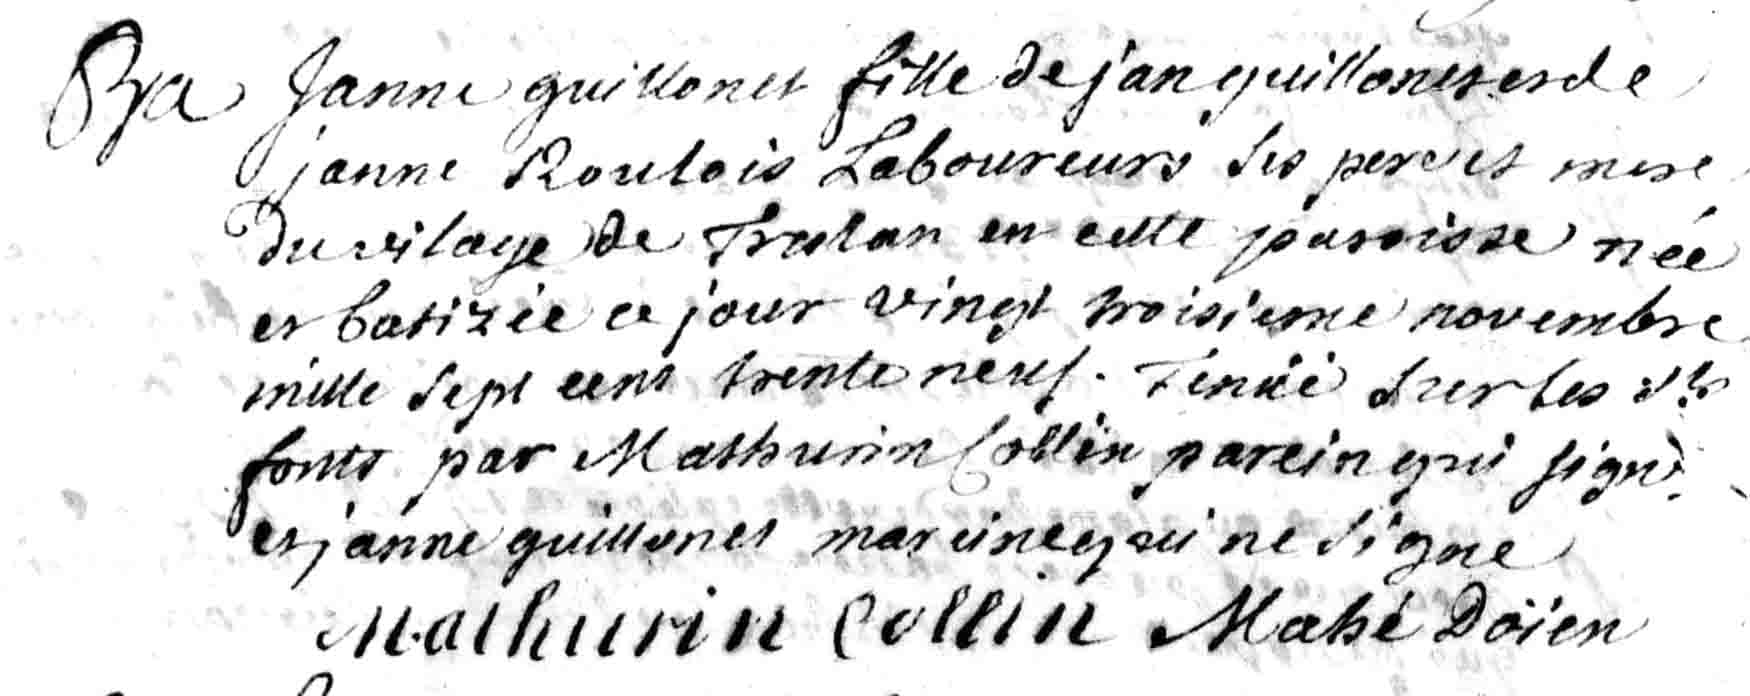 Janne guillonet fille de jan guillonet et de
janne Roulois Laboureurs ses pere et mere
du vilage de Treslan en cette paroisse née
et batizée ce jour vingt troisieme novembre
mille sept cent trente neuf. Tenüe sur les sts
fonts par Mathurin Collin parein qui signe
et janne guillonet mareine qui ne signe
Mathurin Collin Mahé Doïen